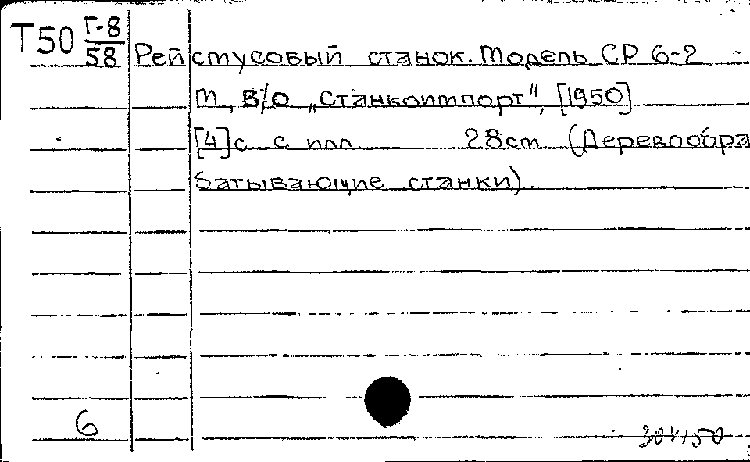 Т50 Г-8/58
Рейсмусовый станок. Модель СР 6-2
М, В/О „Станкоимпорт", [1950]
[4] с. с илл. 28 см (Деревообра
батывающие станки)
6